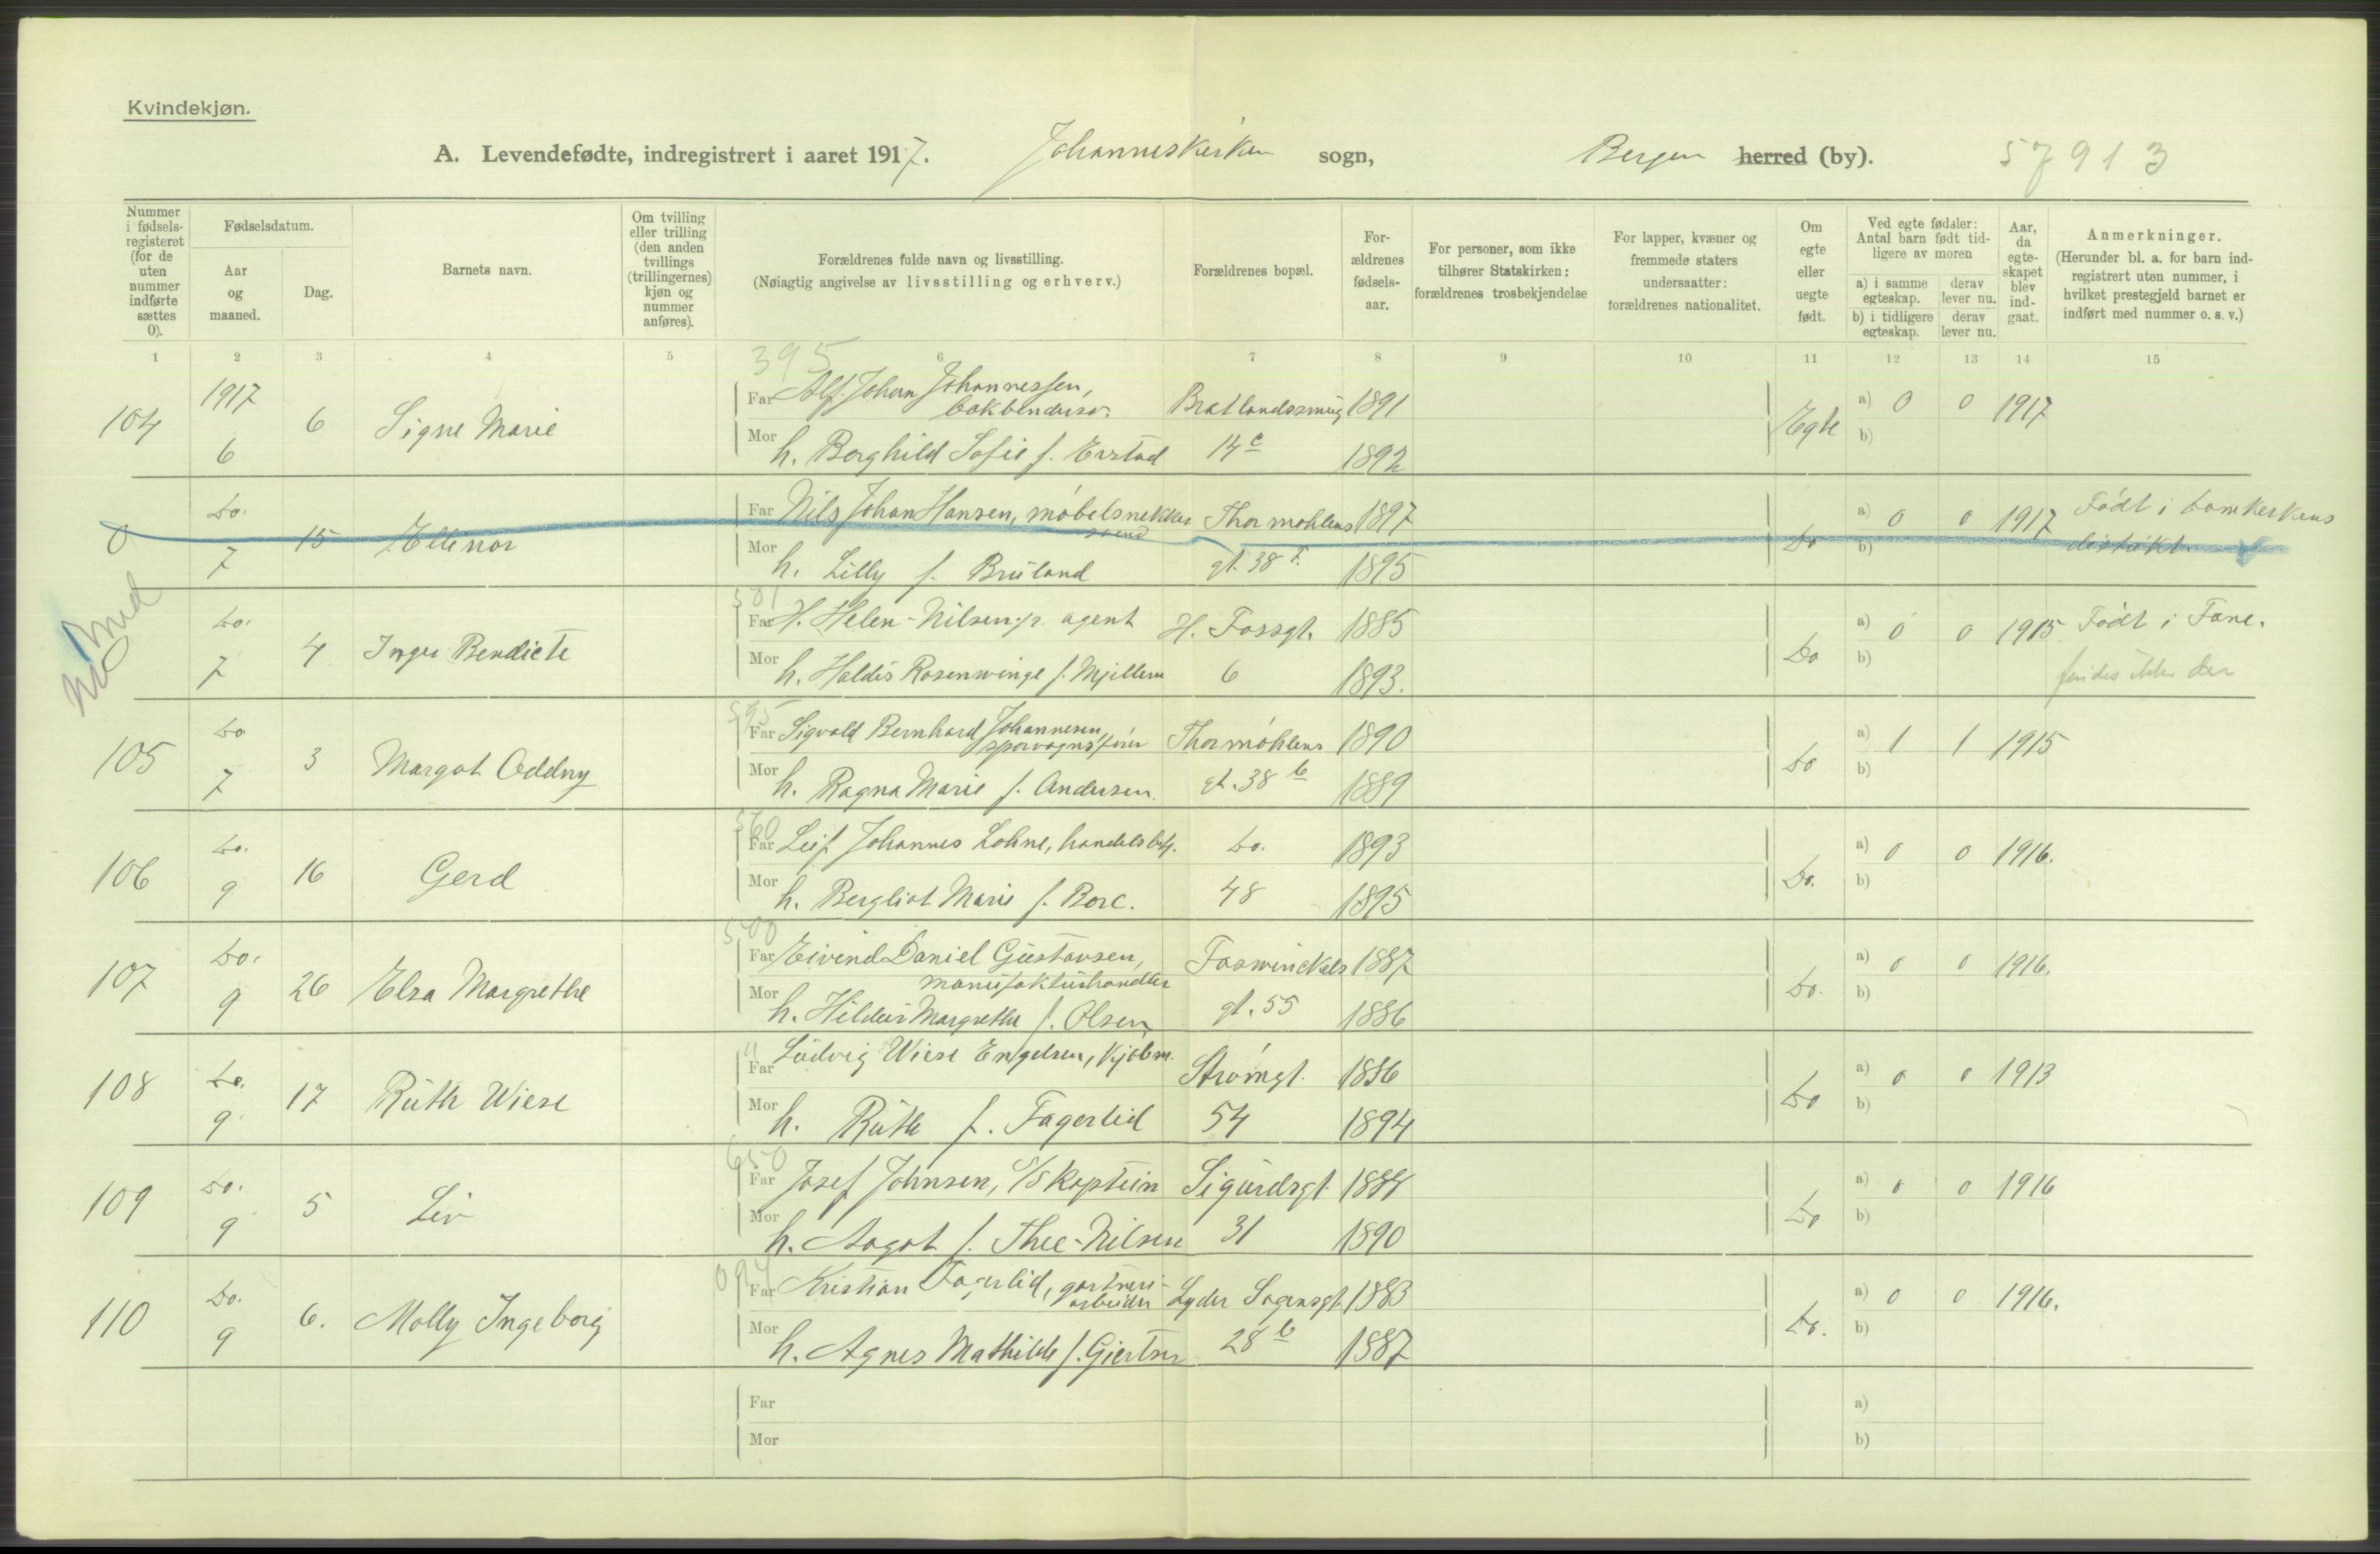 Kvindekjøn.
A. Levendefødte, indregistrert i aaret 1917. Johanneskirken sogn, Bergen herred (by). 57913
Nummer i fødselsregisteret (for de uten nummer indførte sættes 0).
Fødselsdatum.
Aar og maaned.
Dag.
Barnets navn.
Om tvilling eller trilling (den anden tvillings (trillingernes) kjøn og nummer anføres).
Forældrenes fulde navn og livsstilling.
(Nøiagtig angivelse av livsstilling og erhverv.)
Forældrenes bopæl.
Forældrenes fødselsaar.
For personer, som ikke tilhører Statskirken: forældrenes trosbekjendelse
For lapper, kvæner og fremmede staters undersaatter: forældrenes nationalitet.
Om egte eller uegte født.
Ved egte fødsler: Antal barn født tidligere av moren
a) i samme egteskap. derav lever nu.
b) i tidligere egteskap. derav lever nu.
Aar, da egteskapet blev indgaat.
Anmerkninger.
(Herunder bl. a. for barn indregistrert uten nummer, i hvilket prestegjeld barnet er indført med nummer o. s. v.)
1 2 3 4 5 6 7 8 9 10 11 12 13 14 15
395
104 1917 6 6 Signe Marie Far Alf Johan Johannessen, bokbindersv. Bratlandssmug 1891 Egte a) 0 0 1917
Mor h. Borghild Sofie f. Erstad 14c 1892 b)
0 Do. 7 15 Ellinor Far Nils Johan Hansen, møbelsnekker svend Thormøhlens 1897 Do a) 0 0 1917 Født i Domkerkens distrikt.
Mor h. Lilly f. Bruland gt. 38 1895 b)
501
Do. 7 4 Inger Bendicte Far H. Helen-Nilsen jr. agent H. Fossgt. 1885 Do a) 0 0 1915 Født i Fane.
Mor h. Haldis Rosenwinge f. Mjillem 6 1893. b) findes ikke der
595
105 Do 7 3 Margot Oddny Far Sigvald Bernhard Johannesen, sporvognsfører Thormøhlens 1890 Do a) 1 1 1915
Mor h. Ragna Marie f. Andersen. gt. 38 b 1889 b)
560
106 Do. 9 16 Gerd Far Leif Johannes Lohne, handelsbetj. Do. 1893 Do. a) 0 0 1916.
Mor h. Bergliot Marie f. Borc. 48 1895 b)
500
107 Do. 9 26 Elsa Margrethe Far Eivind Daniel Gustavsen, manufakturhandler Foswinckels 1887 Do. a) 0 0 1916.
Mor h. Hildur Margrethe f. Olsen gt. 55 1886 b)
108 Do. 9 17 Ruth Wiese Far Ludvig Wiese Engelsen, kjøbm. Strømgt. 1886 Do a) 0 0 1913
Mor h. Ruth f. Fagerlid 54 1894 b)
650
109 Do. 9 5 Liv Far Josef Johnsen, S/S kaptein Sigurdsgt. 1884 Do a) 0 0 1916
Mor h. Aagot f. Thee-Nilsen 31 1890 b)
110 Do. 9 6. Molly Ingeborg Far Kristian Fagerlid, gartneriarbeider Lyder Sagensgt. 1883 Do. a) 0 0 1916.
Mor h. Agnes Mathilde f. Giertsen 28 b 1887 b)
Far a)
Mor b)